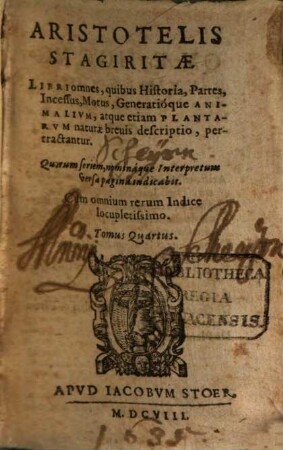 ARISTOTELIS
STAGIRITÆ
LIBRI omnes, quibus Historia, Partes,
Incessus, Motus, Generatióque ANI-
MALIVM, atque etiam PLANTA-
RVM naturæ breuis descriptio, per-
tractantur.
Scheyrn
Quorum seriem, nomináque Interpretum
versa pagina indicabit.
Cum omnium rerum Indice
locupletissimo.
Tomus Quartus.
Scheyrn
BIBLIOTHECA
REGIA
MONACENSIS
APVD IACOBVM STOER
M. DCVIII.
1635